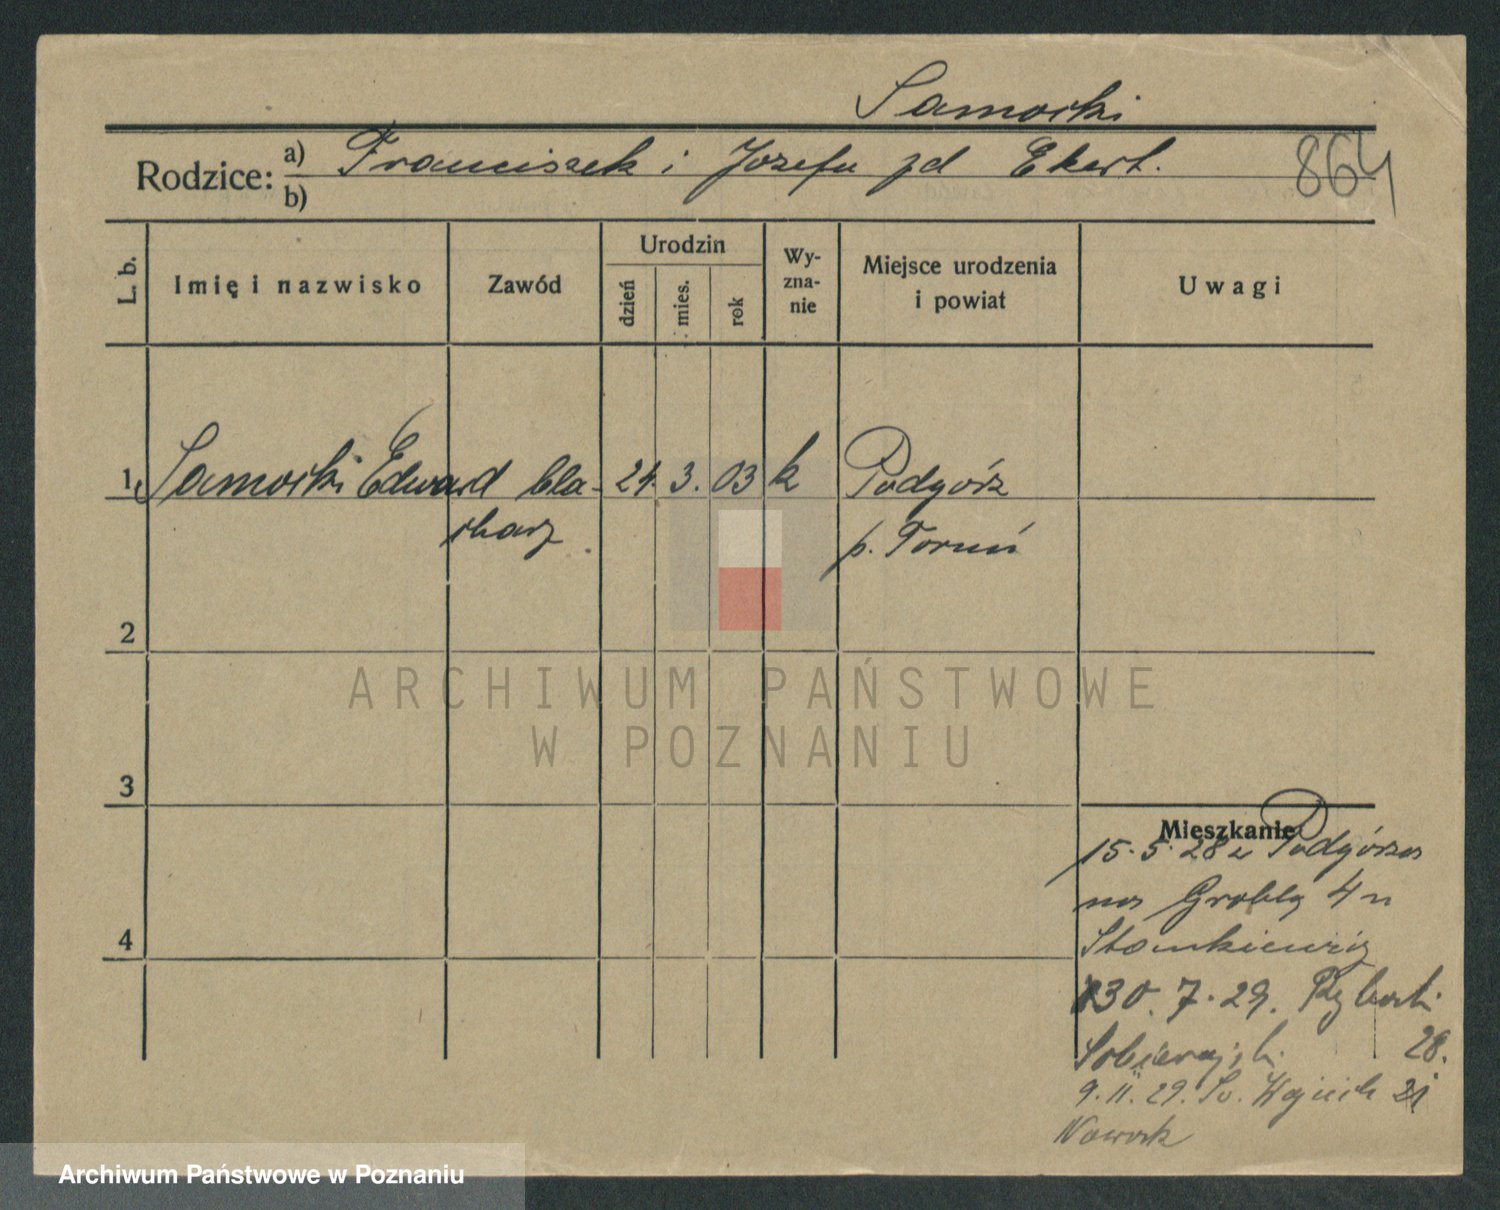 Samocki
Rodzice: a) Franciszek i Józefa zd Ekert.
b)
864
L. b.
Imię i nazwisko
Zawód
Urodzin
dzień
mies.
rok
Wy-
zna-
nie
Miejsce urodzenia
i powiat
Uwagi
1 Samocki Edward bla- 24. 3. 03 k Podgórz
charz p. Toruń
2
3
4
Mieszkanie
15.5.28 z Podgórza
na Groblę 4 u
Stankiewicz
30.7.29. Rybaki
28.
9.11.29. Św. Wojciech 21
Nowack
ARCHIWUM PAŃSTWOWE
W POZNANIU
Archiwum Państwowe w Poznaniu